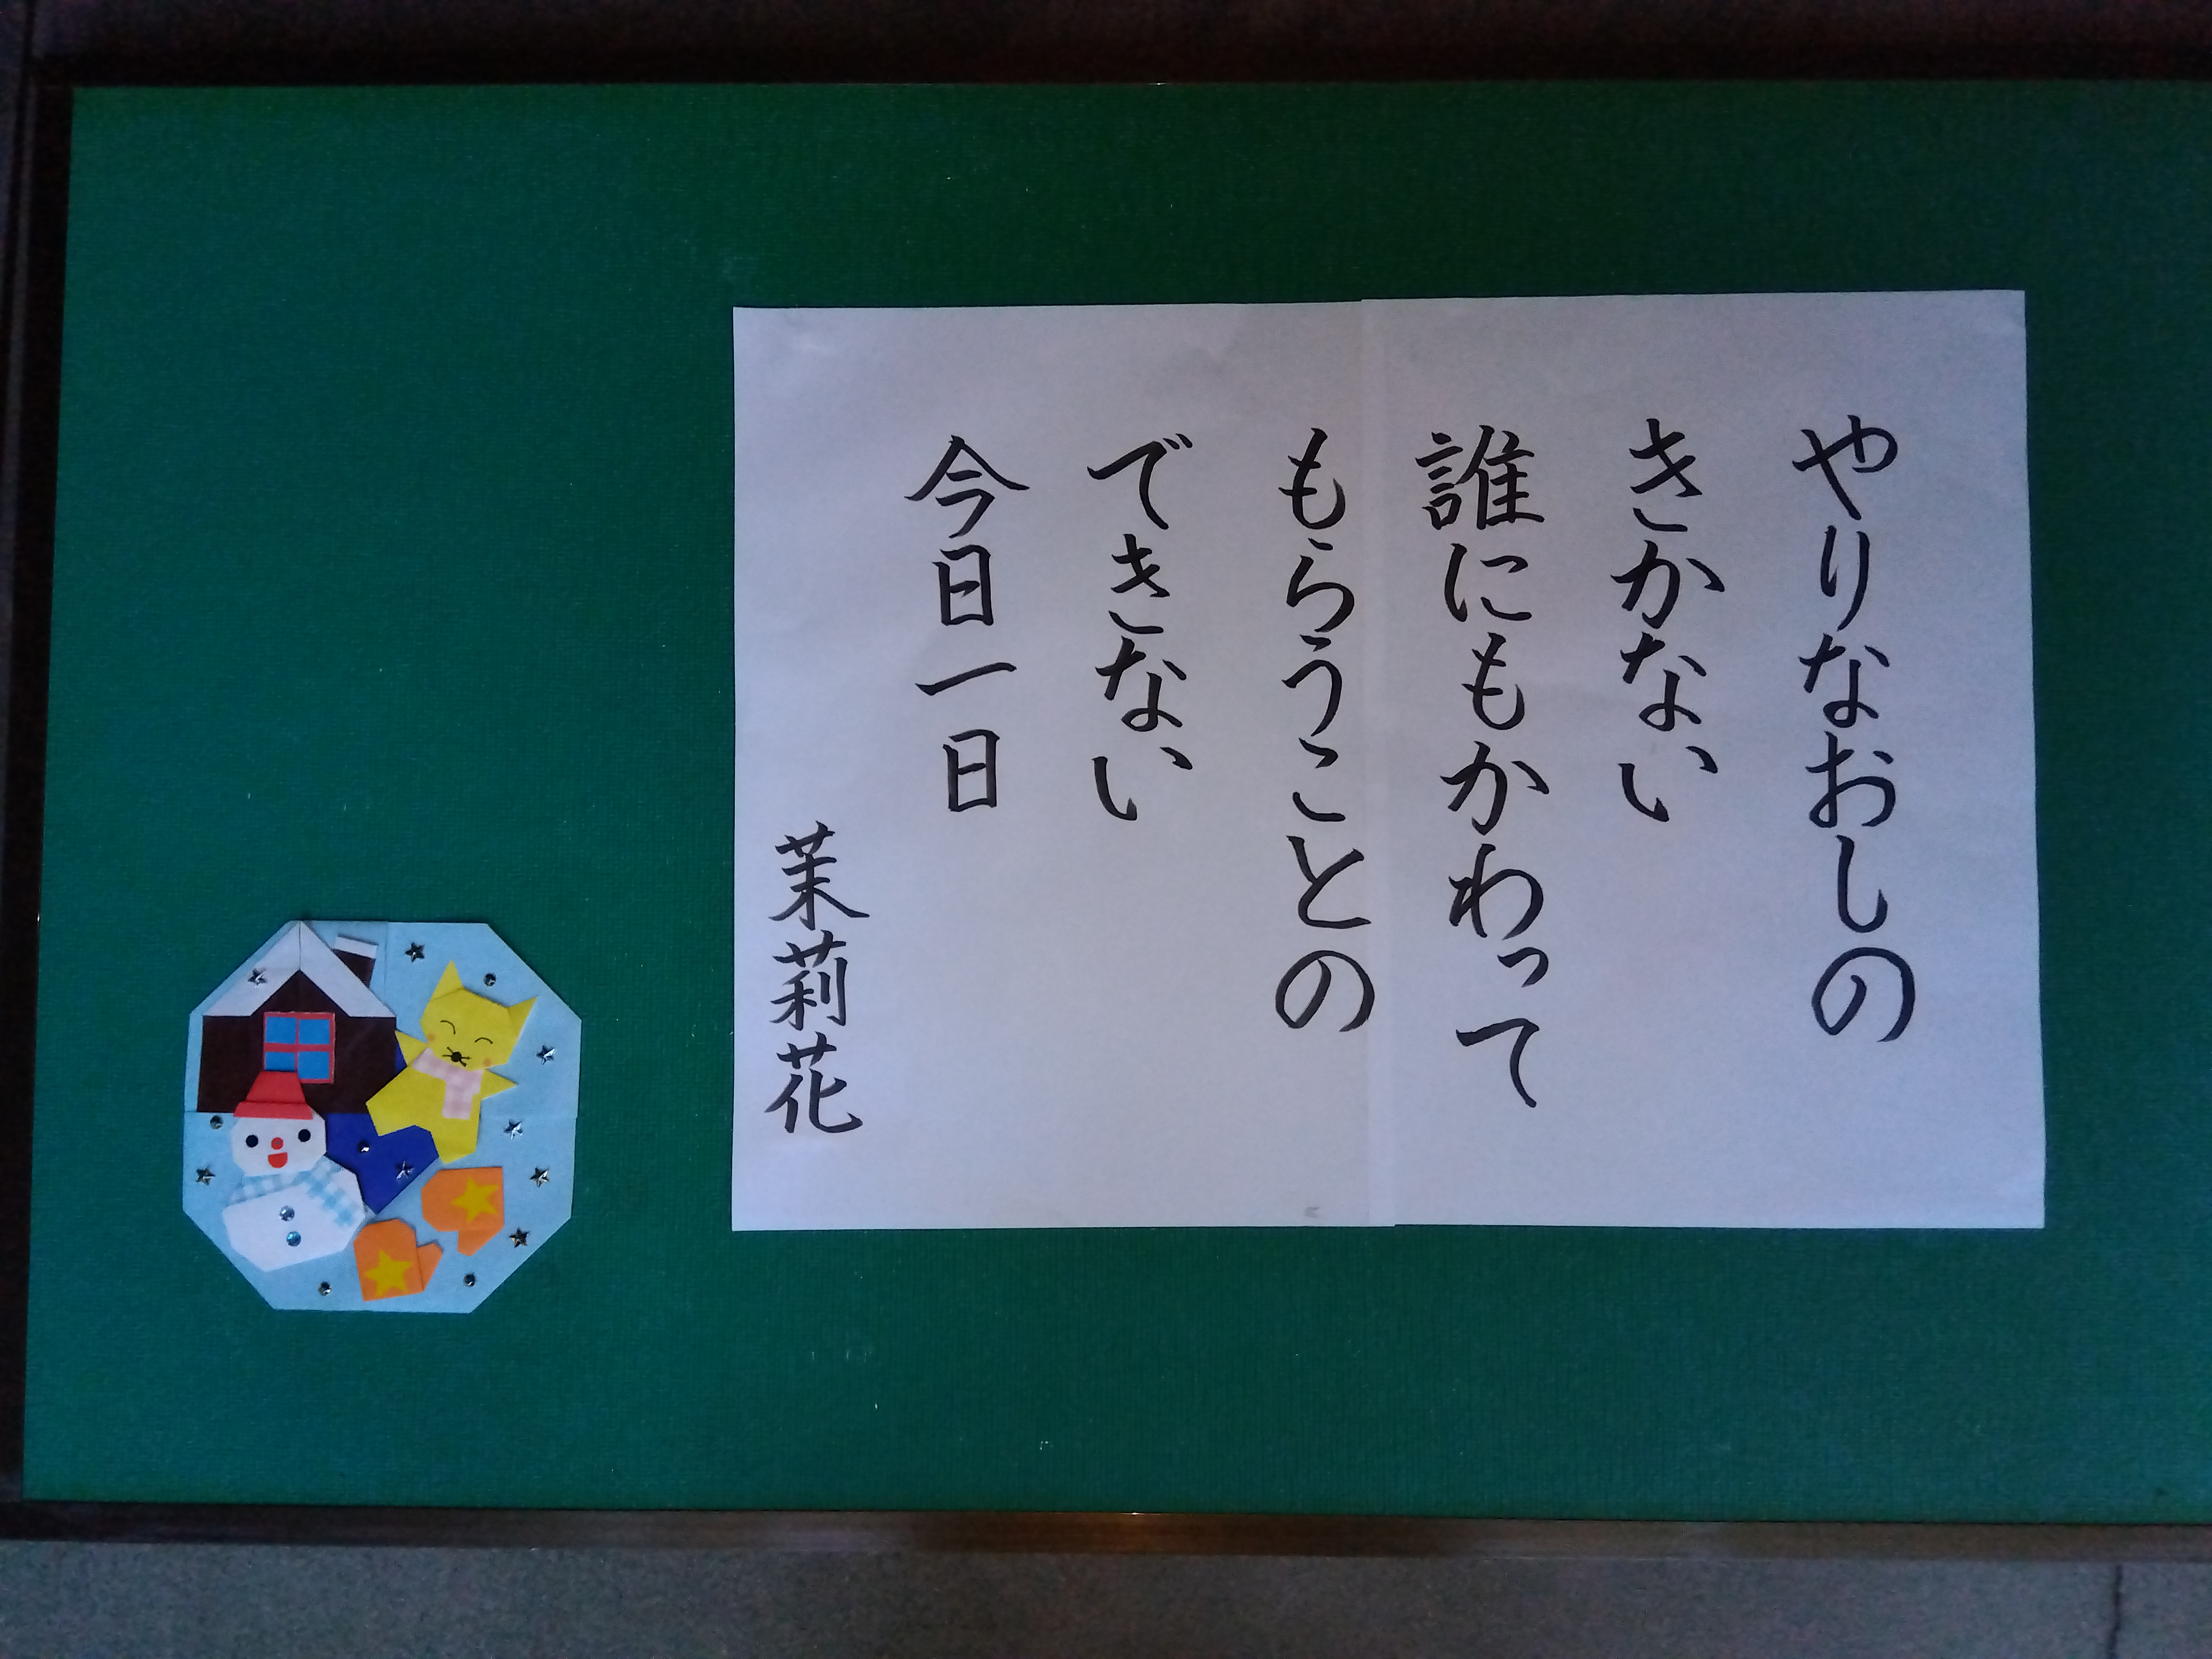 やりなおしの
きかない
誰にもかわって
もらうことの
できない
今日一日
茉莉花